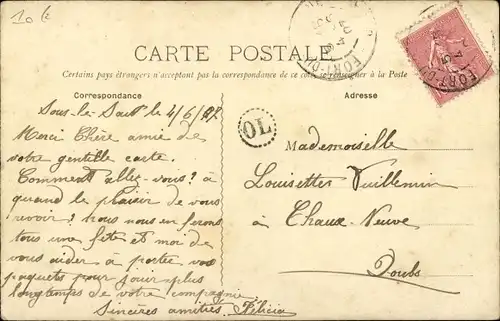 10 €
CARTE POSTALE
Certains pays étrangers n'acceptant pas la correspondance de ce côté, se renseigner à la Poste
Correspondance
Sous-le-Saut le 4/6/07
Merci Chère amie de
votre gentille carte.
Comment allez-vous? à
quand le plaisir de vous
revoir? nous nous en ferons
tous une fête et moi de
vous aider à porter vos
paquets pour jouir plus
longtemps de votre compagnie
Sincères amitiés Félicia
OL
Adresse
Mademoiselle
Louisette Vuillemin
à Chaux-Neuve
Doubs
FORT-DU
FORT-DU